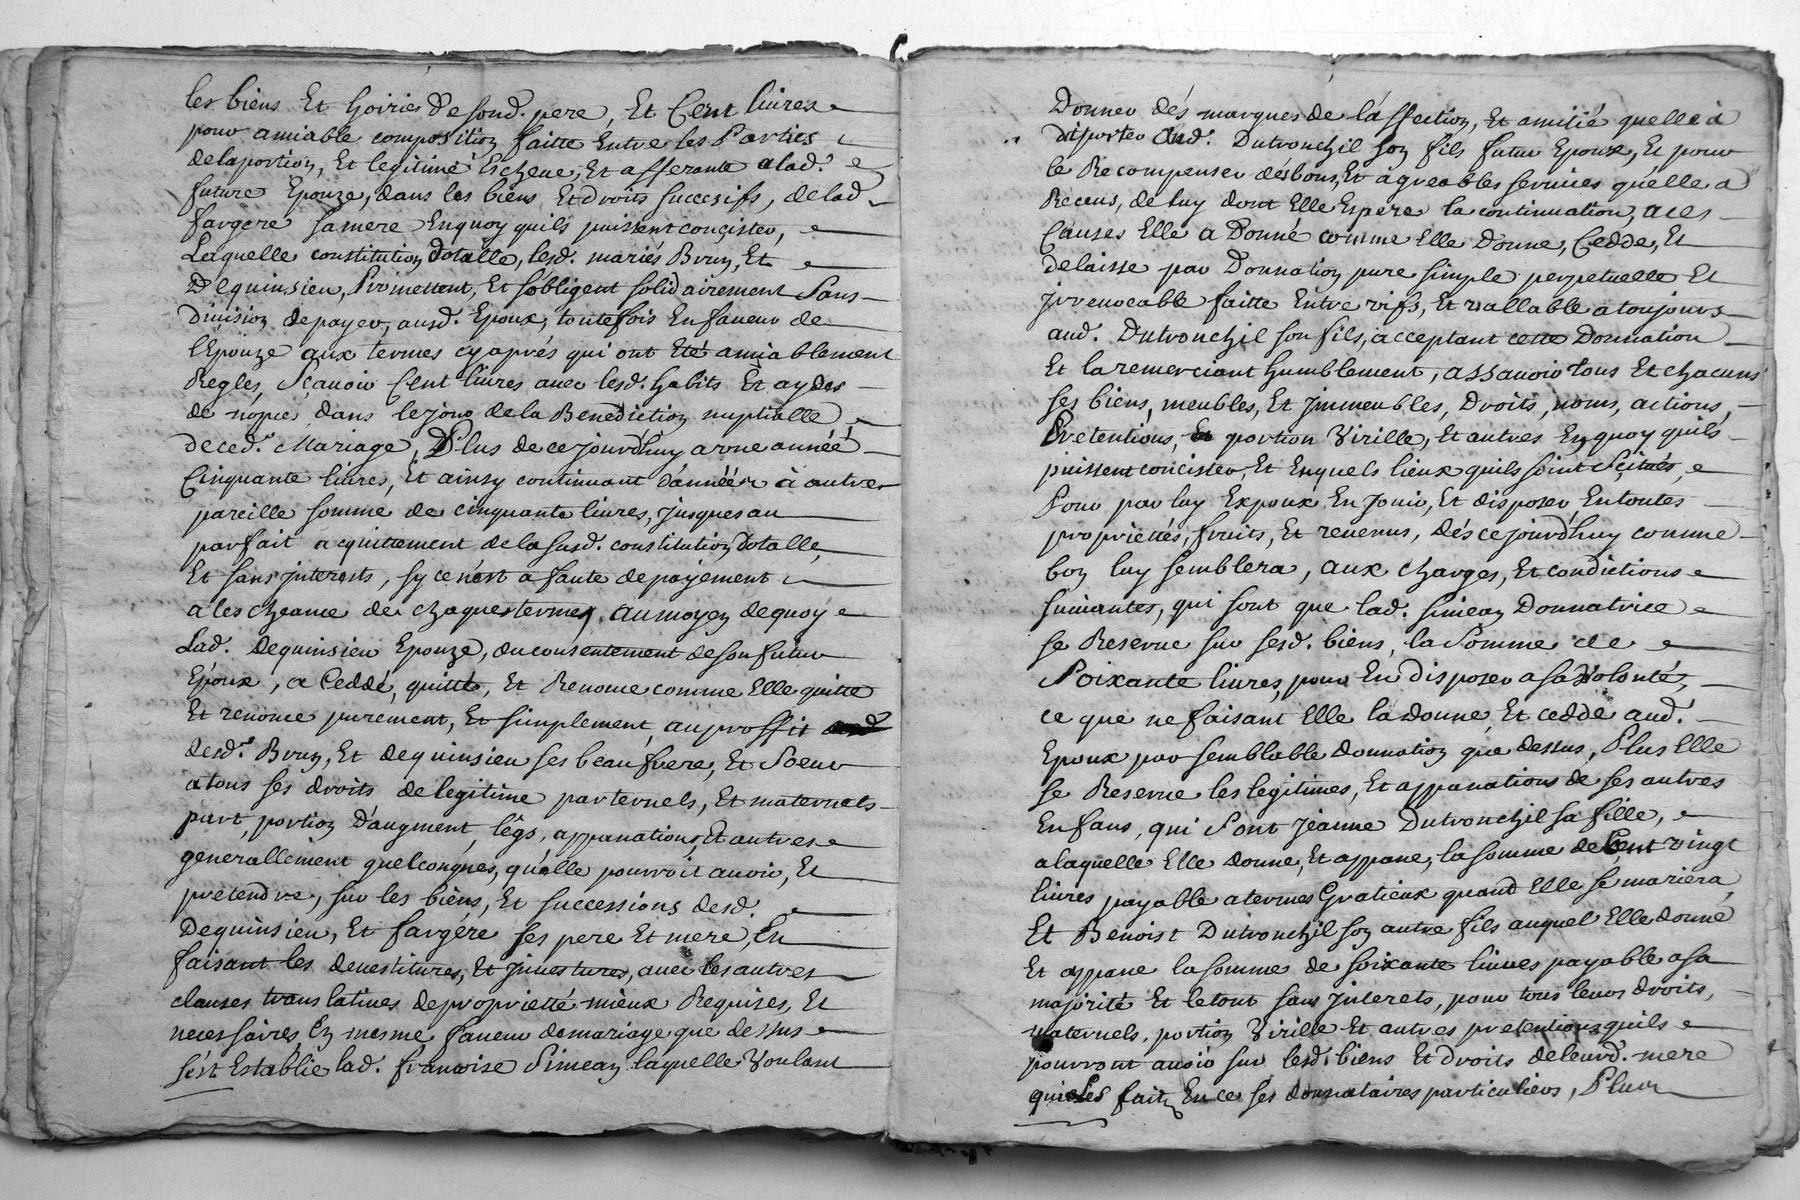 les biens Et hoiries de sond. pere, Et Cent livres
pour amiable composition faitte Entre les Parties
de la portion, Et legitime Escheue, Et afferante a lad.
future Epouze, dans les biens Et droits successifs, de lad
fargere sa mere Enquoy quils puissent concister,
Laquelle constitution dotalle, lesd. mariés Brun, Et
Dequinsieu, Promettent, Et s'obligent solidairement sans
Division de payer, ausd. Epoux, toutefois En faveur de
l'Epouze aux termes cy aprés qui ont Eté amiablement
Reglés, Scavoir Cent livres avec lesd. habits Et
de nopces, dans le jour de la Benediction nuptialle
de ced. Mariage, Plus de ce jourdhuy a une année
Cinquante livres, Et ainsy continuant d'année à autre
pareille somme de cinquante livres, jusques au
parfait acquittement de la susd. constitution dotalle,
Et sans interests, sy ce n'est a faute de payement
a les cheance de chaques termes, au moyen de quoy
Lad. Dequinsieu Epouze, du consentement de son futur
Epoux, a Ceddé, quitté, Et Renonce comme Elle quitte
Et renonce purement, Et simplement, au proffit
desd. Brun, Et dequinsieu ses beau frere, Et Soeur
a tous ses droits de legitime parternels, Et maternels
part, portion d'augment, légs, appanations Et autres
generallement quelconques, qu'elle pourroit avoir, Et
pretendre, sur les biens, Et successions desd.
Dequinsieu, Et fargére ses pere Et mere, En
faisant les devestitures, Et jnvestures, avec les autres
clauses translatives de proprietté mieux Requises, Et
necessaires, En mesme faveur de mariage que dessus
s'est Establie lad. francoise Simean laquelle Voulant
Donner dés marques de l'affection, Et amitié quelle à
aud. Dutronchil son fils futur Epoux, Et pour
le Recompenser dés bons, Et agreables services qu'elle a
Receus, de luy dont Elle Espere la continuation, a ces
Causes Elle a Donné comme Elle Donne, Cedde, Et
delaisse par Donnation pure simple perpetuelle Et
jrrevocable faitte Entre vifs, Et vallable a toujours
aud. Dutronchil son fils, acceptant cette Donnation
Et la remerciant humblement, assavoir tous Et chacuns
ses biens, meubles, Et jmmeubles, Droits, noms, actions,
Pretentions, portion Virille, Et autres En quoy quils
puissent concister, Et Enquels lieux quils soint Scitués,
Pour par luy Expoux En Jouir, Et disposer, En toutes
propriettés, fruits, Et revenus, dés ce jourd'huy comme
bon luy semblera, aux charges, Et condictions
suivantes, qui sont que lad. Simean Donnatrice
se Reserve sur sesd. biens, la Somme de
Soixante livres, pour En disposer a sa Volonté,
ce que ne faisant Elle la donne Et cedde aud.
Epoux par semblable donnation que dessus, Plus Elle
se Reserve les legitimes, Et appanations de ses autres
Enfans, qui Sont Jeanne Dutronchil sa fille,
a laquelle Elle donne, Et appane, la somme de Cent vingt
livres payable a termes Gratieux quand Elle se mariera
Et Benoist Dutronchil son autre fils auquel Elle donne
Et appane la somme de soixante livres payable a sa
majorité Et le tout sans jnterets, pour tous leurs droits,
maternels, portion Virille Et autres pretentions quils
pourront avoir sur lesd. biens Et Droits de leurd. mere
quieles fait En ce ses donnataires particuliers, Plus